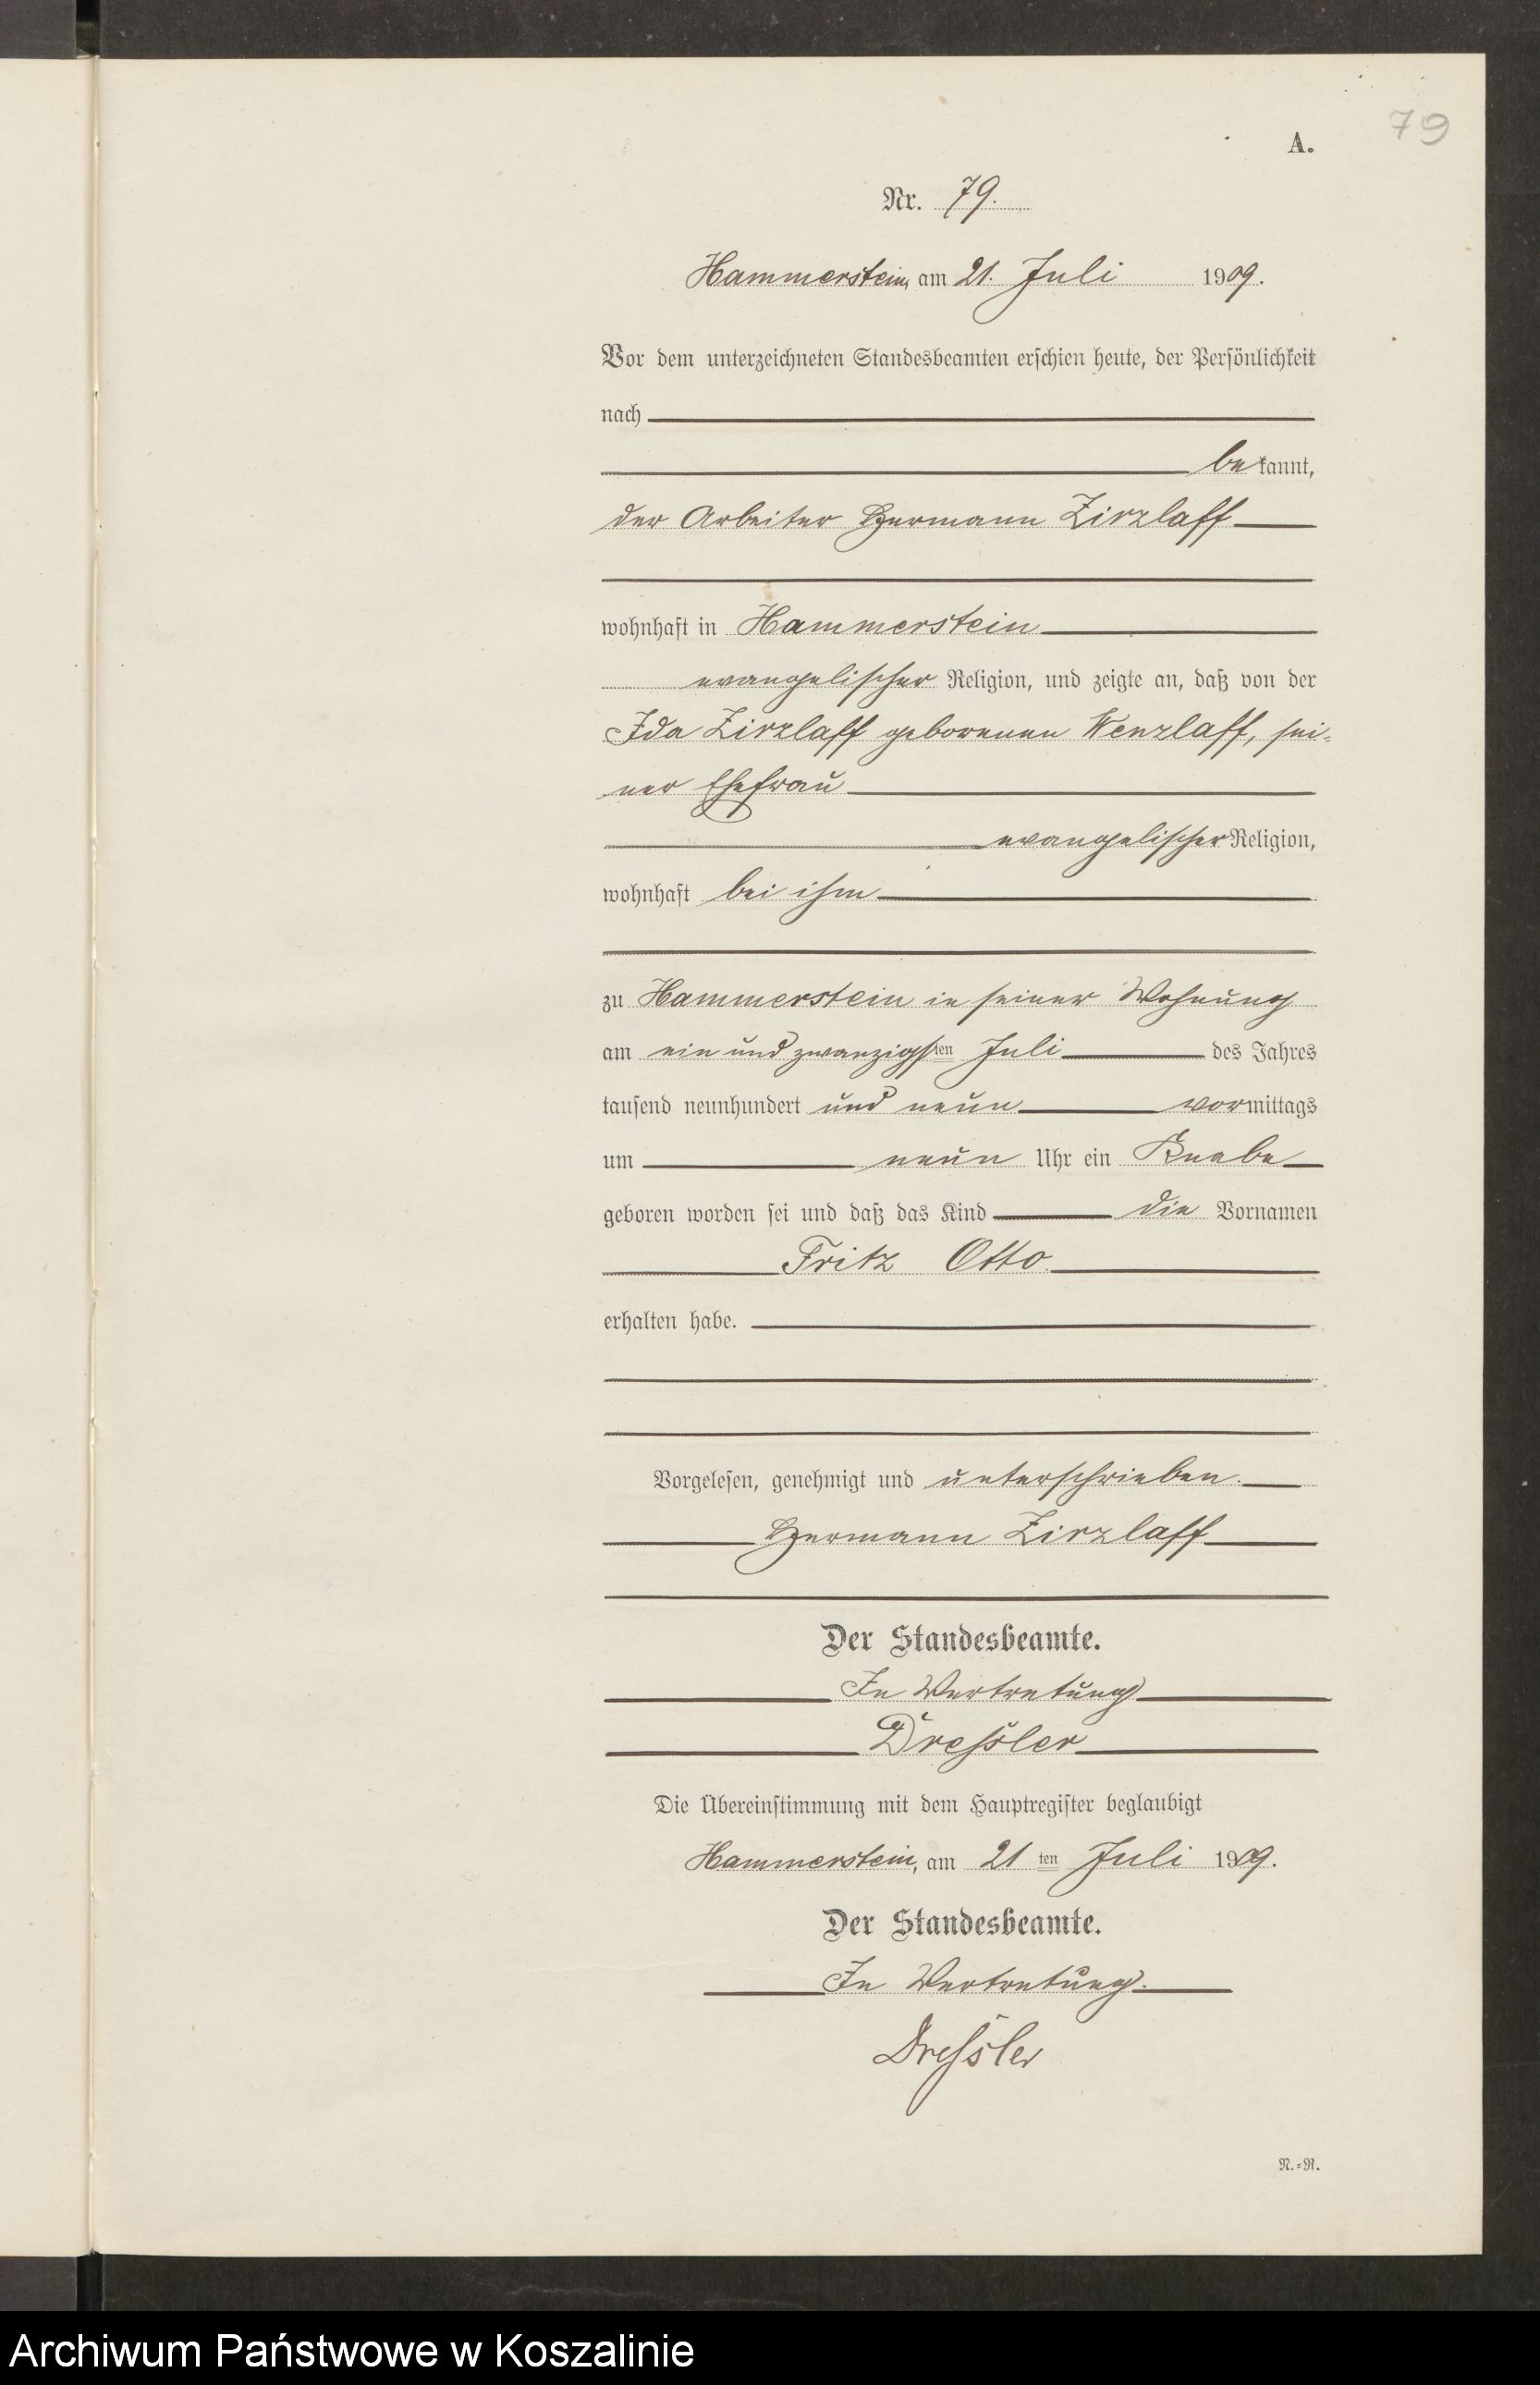 79
A.
Nr. 79.
Hammerstein, am 21. Juli 1909.
Vor dem unterzeichneten Standesbeamten erschien heute, der Persönlichkeit
nach
bekannt,
der Arbeiter Hermann Zirzlaff
wohnhaft in Hammerstein
evangelischer Religion, und zeigte an, daß von der
Ida Zirzlaff geborenen Wenzlaff, sei-
ner Ehefrau
evangelischer Religion,
wohnhaft bei ihm
zu Hammerstein in seiner Wohnung
am ein und zwanzigsten Juli des Jahres
tausend neunhundert und neun vormittags
um neun Uhr ein Knabe
geboren worden sei und daß das Kind die Vornamen
Fritz Otto
erhalten habe.
Vorgelesen, genehmigt und unterschrieben.
Hermann Zirzlaff
Der Standesbeamte.
In Vertretung
Dressler
Die Übereinstimmung mit dem Hauptregister beglaubigt
Hammerstein, am 21ten Juli 1909.
Der Standesbeamte.
In Vertretung.
Dressler
N.-R.
Archiwum Państwowe w Koszalinie